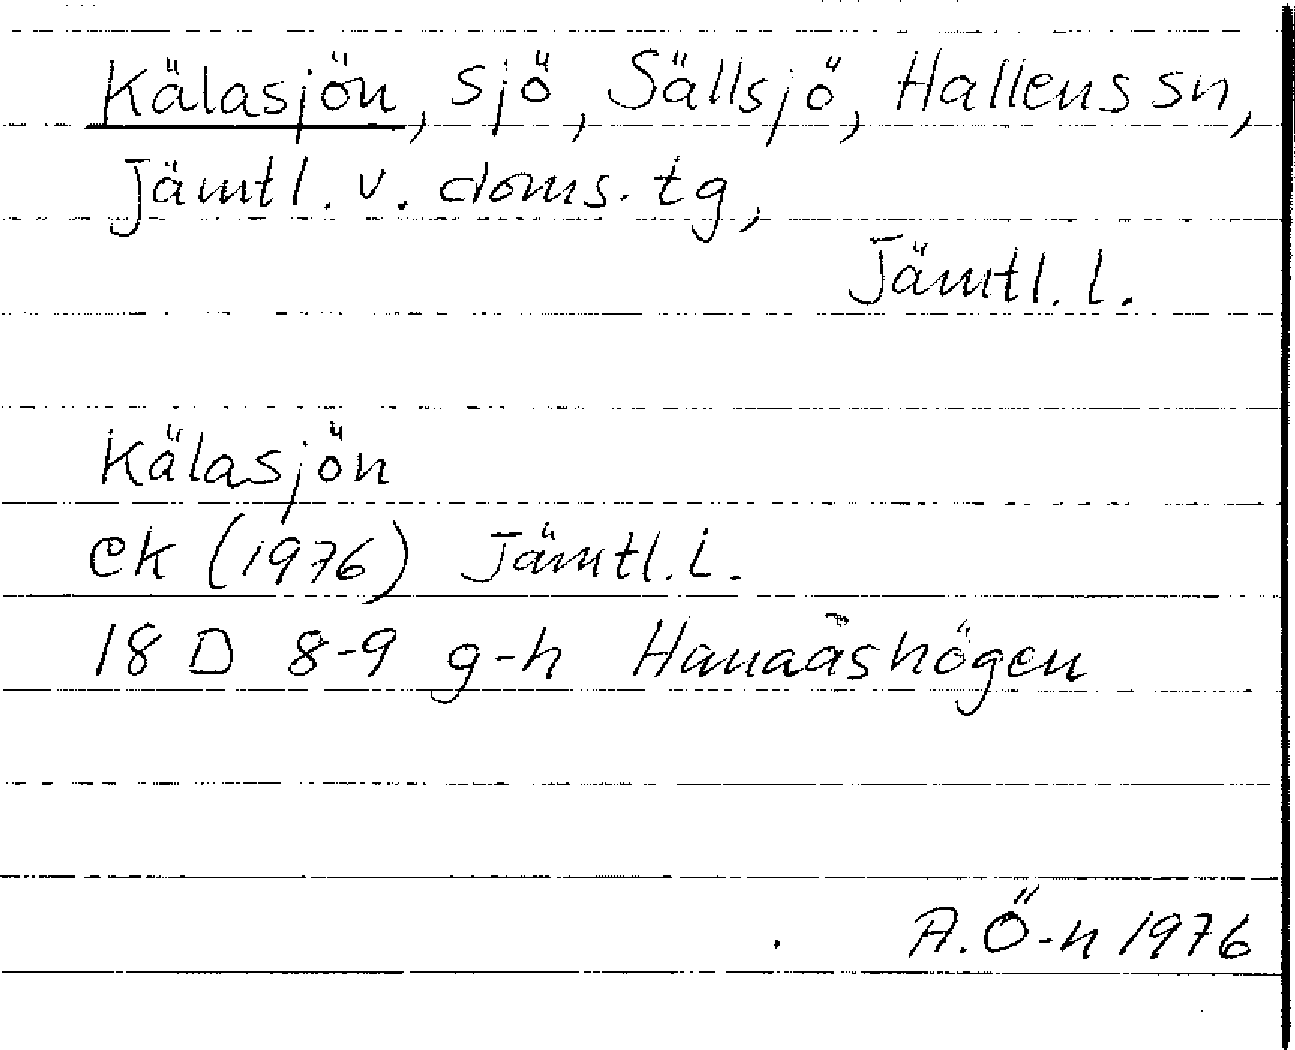 Kälasjön, sjö, Sällsjö, Hallens sn,
Jämtl. v. doms. tg,
Jämtl. l.
Kälasjön
ek (1976) Jämtl. L.
18 D 8-9 g-h Hanaåshögen
A. Ö-n 1976